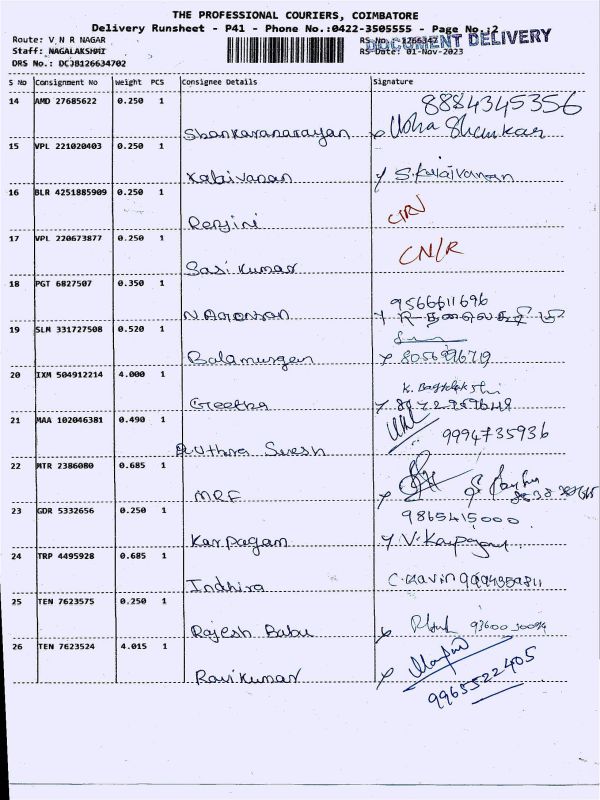 THE PROFESSIONAL COURIERS, COIMBATORE
Delivery Runsheet - P41 - Phone No.:0422-3505555 - Page No.:2
DOCUMENT DELIVERY
Route: V N R NAGAR RS No.: 1266347
Staff: NAGALAKSHMI RS Date: 01-Nov-2023
DRS No.: DCJB126634702
S No Consignment No Weight PCS Consignee Details Signature
14 AMD 27685622 0.250 1 8884345356
Shankaranarayan Usha Shankar
15 VPL 221020403 0.250 1
Kalaivanan S. Kalaivanan
16 BLR 4251885909 0.250 1
Renjini
17 VPL 220673877 0.250 1 CN/R
Sasi Kumar
18 PGT 6827507 0.350 1 9566611696
19 SLM 331727508 0.520 1
Balamurugan 8056996719
20 IXM 504912214 4.000 1
Geetha
21 MAA 102046381 0.490 1
Suresh 9994735936
22 MTR 2386080 0.685 1
MRF
23 GDR 5332656 0.250 1 9865415000
Karpagam V. Karpagam
24 TRP 4495928 0.685 1
Indhira C. Kavin 9994359811
25 TEN 7623575 0.250 1
Rajesh Babu
26 TEN 7623524 4.015 1
Ravikumar
9965522405